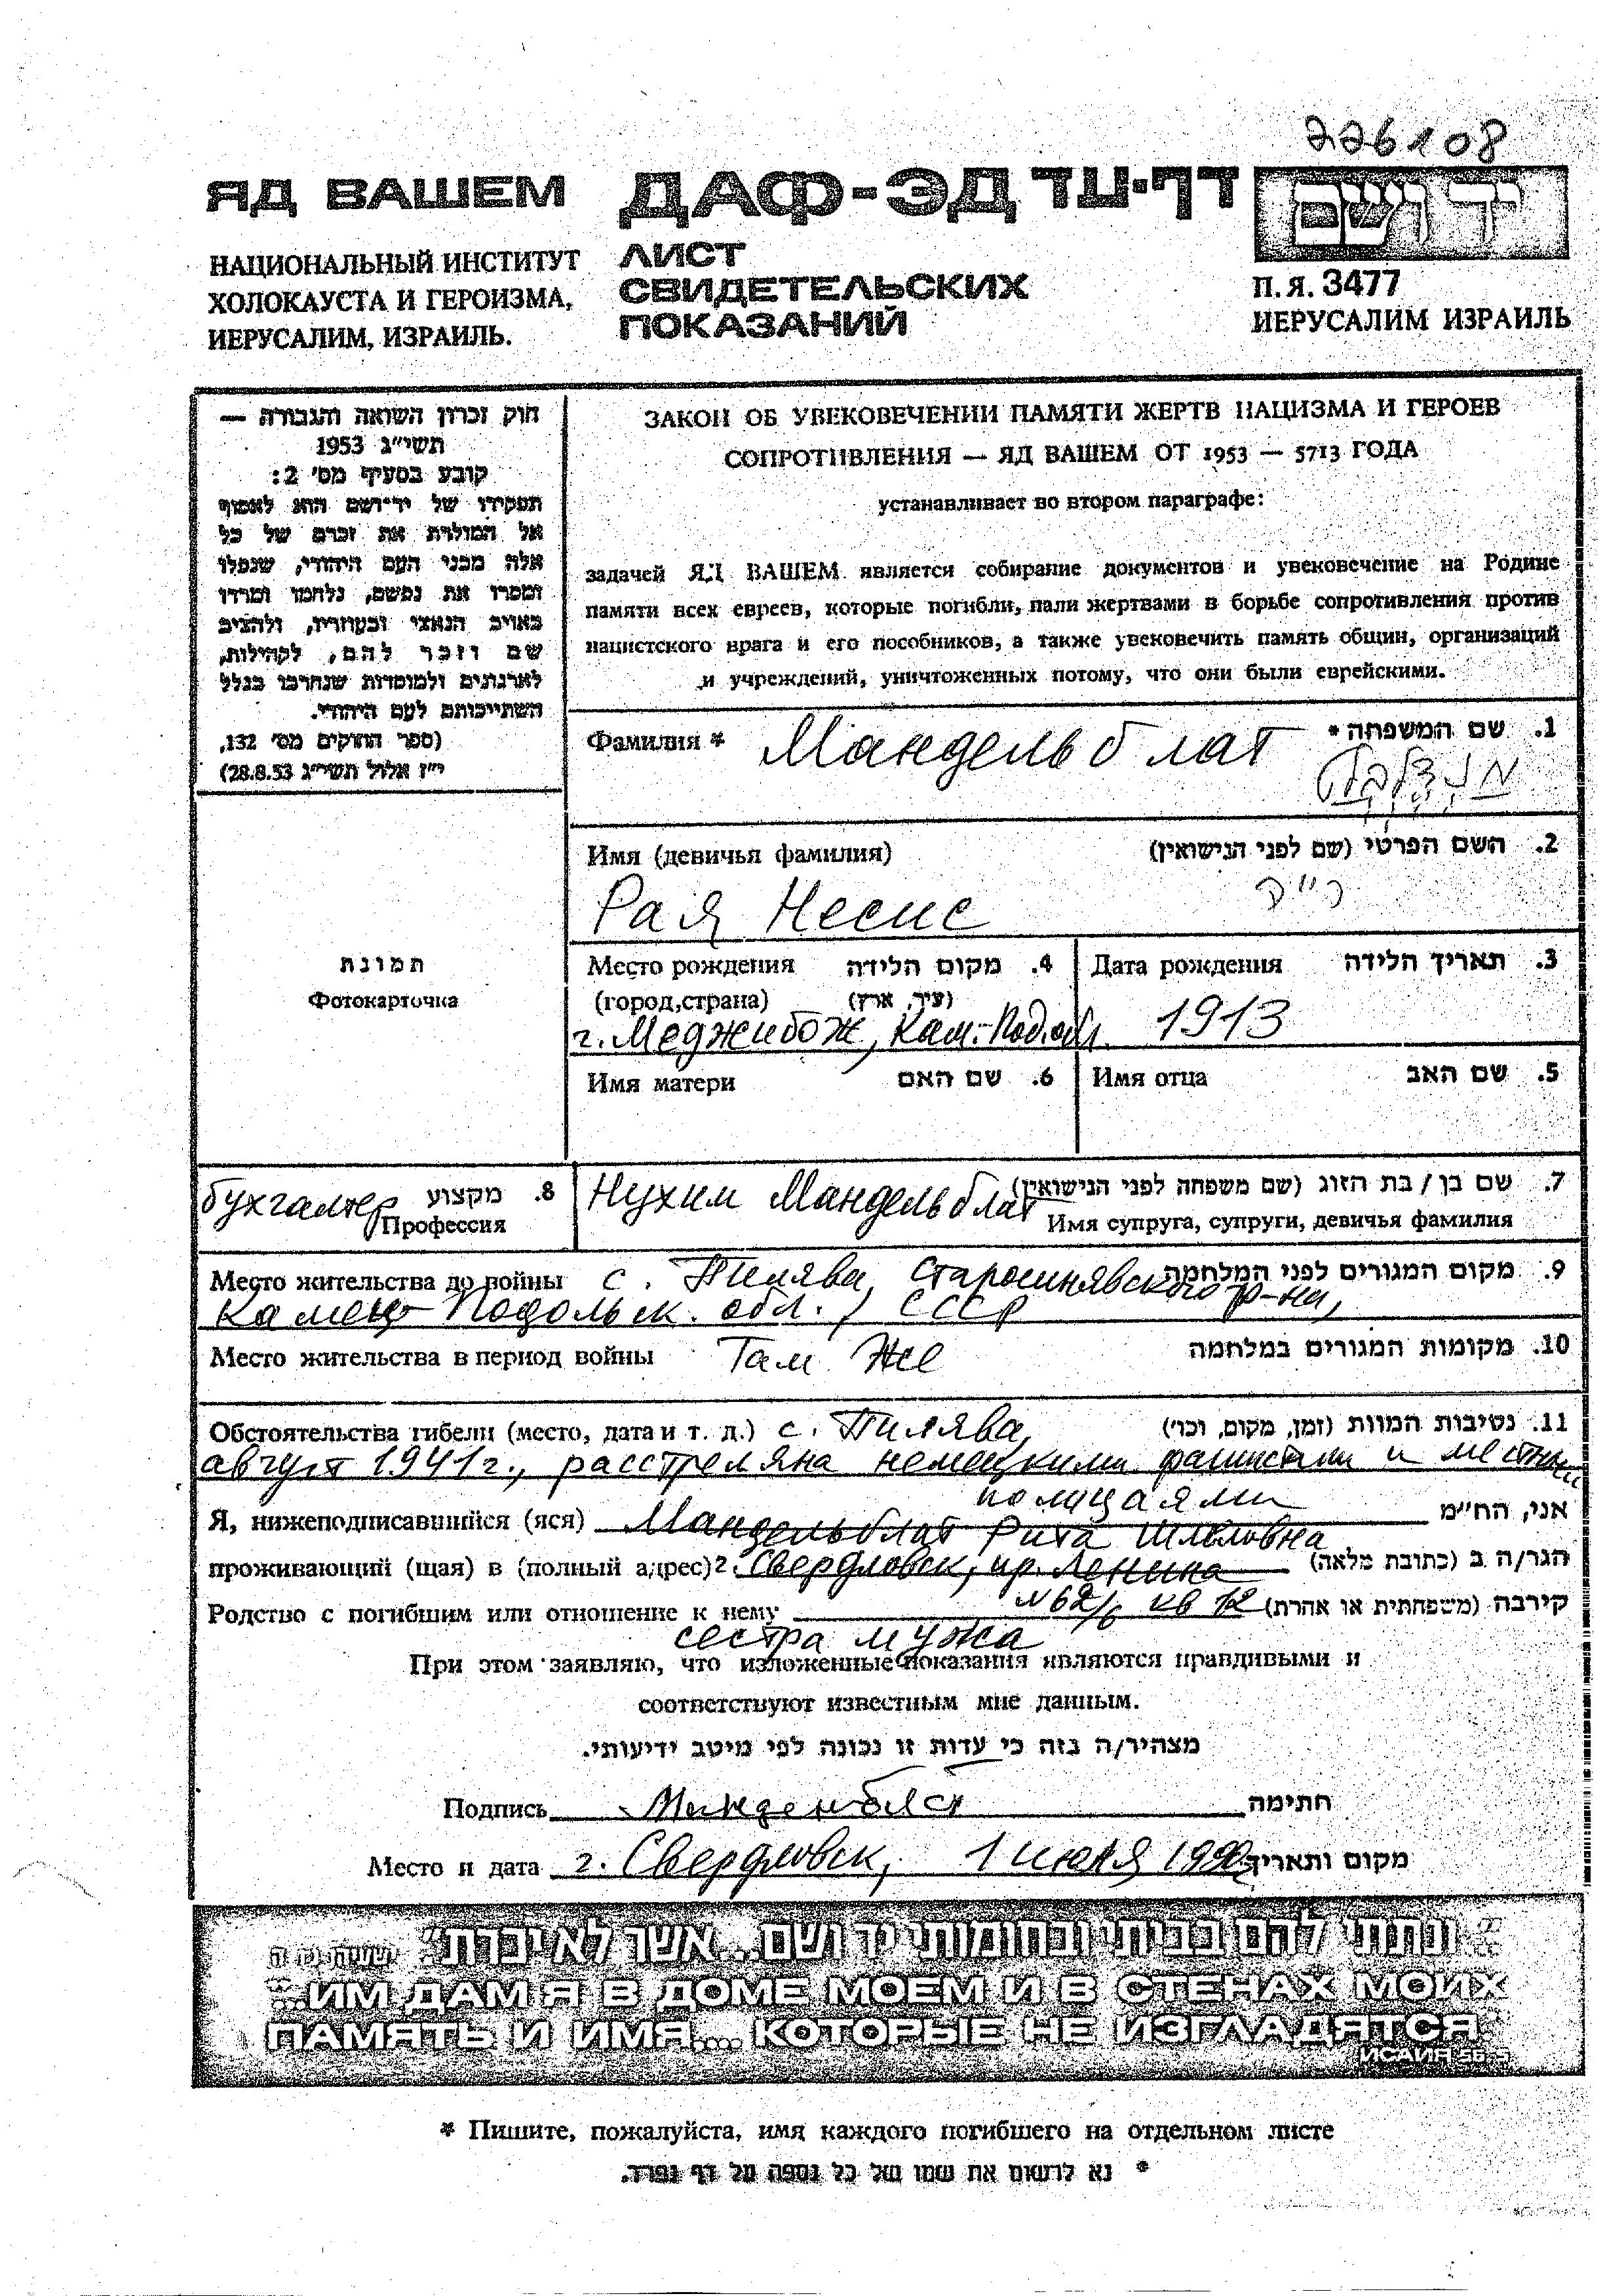 226108
ЯД ВАШЕМ ДАФ-ЭД דף-עד יד ושם
НАЦИОНАЛЬНЫЙ ИНСТИТУТ
ХОЛОКАУСТА И ГЕРОИЗМА,
ИЕРУСАЛИМ, ИЗРАИЛЬ.
ЛИСТ
СВИДЕТЕЛЬСКИХ
ПОКАЗАНИЙ
П.Я. 3477
ИЕРУСАЛИМ ИЗРАИЛЬ
חוק זכרון השואה והגבורה —
תשי״ג 1953
קובע בסעיף מס׳ 2:
תפקידו של יד־ושם הוא לאסוף
אל המולדת את זכרם של כל
אלה מבני העם היהודי, שנפלו
ומסרו את נפשם, נלחמו ומרדו
באויב הנאצי ובעוזריו, ולהציב
שם וזכר להם, לקהילות,
לארגונים ולמוסדות שנחרבו בגלל
השתייכותם לעם היהודי.
(ספר החוקים מס׳ 132,
י״ז אלול תשי״ג 28.8.53)
ЗАКОН ОБ УВЕКОВЕЧЕНИИ ПАМЯТИ ЖЕРТВ НАЦИЗМА И ГЕРОЕВ
СОПРОТИВЛЕНИЯ — ЯД ВАШЕМ ОТ 1953 — 5713 ГОДА
устанавливает во втором параграфе:
задачей ЯД ВАШЕМ является собирание документов и увековечение на Родине
памяти всех евреев, которые погибли, пали жертвами в борьбе сопротивления против
нацистского врага и его пособников, а также увековечить память общин, организаций
и учреждений, уничтоженных потому, что они были еврейскими.
Фамилия * Мандельблат 1. שם המשפחה *
מנדלבלט
Имя (девичья фамилия) 2. השם הפרטי (שם לפני הנישואין)
Рая Несис
תמונת
Фотокарточка
Место рождения 4. מקום הלידה
(город,страна) (עיר, ארץ)
г. Меджибож, Кам.-Под.обл.
Дата рождения 3. תאריך הלידה
1913
Имя матери 6. שם האם
Имя отца 5. שם האב
бухгалтер 8. מקצוע
Профессия
Нухим Мандельблат 7. שם בן / בת הזוג (שם משפחה לפני הנישואין)
Имя супруга, супруги, девичья фамилия
Место жительства до войны с. Пилява, Старосинявского р-на, 9. מקום המגורים לפני המלחמה
Камец-Подольск. обл., СССР
Место жительства в период войны Там же 10. מקומות המגורים במלחמה
Обстоятельства гибели (место, дата и т. д.) с. Пилява, 11. נסיבות המוות (זמן, מקום, וכו׳)
август 1941г., расстреляна немецкими фашистами и местными
полицаями
Я, нижеподписавшийся (яся) Мандельблат Рита Шмиловна אני, הח״מ
проживающий (щая) в (полный адрес) г. Свердловск, пр. Ленина הגר/ה ב (כתובת מלאה)
№62/6 кв 12
Родство с погибшим или отношение к нему קירבה (משפחתית או אחרת)
сестра мужа
При этом заявляю, что изложенные показания являются правдивыми и
соответствуют известным мне данным.
מצהיר/ה בזה כי עדות זו נכונה לפי מיטב ידיעותי.
Подпись Мандельблат חתימה
Место и дата г. Свердловск, 1 июля מקום ותאריך
״ונתתי להם בביתי ובחומותי יד ושם...אשר לא יכרת״ ישעיה נו ה
"...ИМ ДАМ Я В ДОМЕ МОЕМ И В СТЕНАХ МОИХ
ПАМЯТЬ И ИМЯ,... КОТОРЫЕ НЕ ИЗГЛАДЯТСЯ."
ИСАИЯ 56-5
* Пишите, пожалуйста, имя каждого погибшего на отдельном листе
* נא לרשום את שמו של כל נספה על דף נפרד.